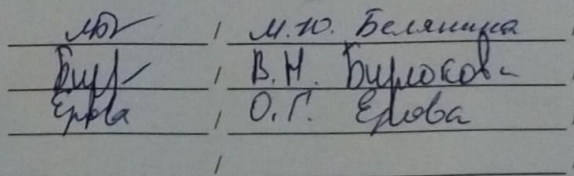 / М.Ю. Белянина
/ В.Н. Бирюкова
Ерова / О.Г. Ерова
/